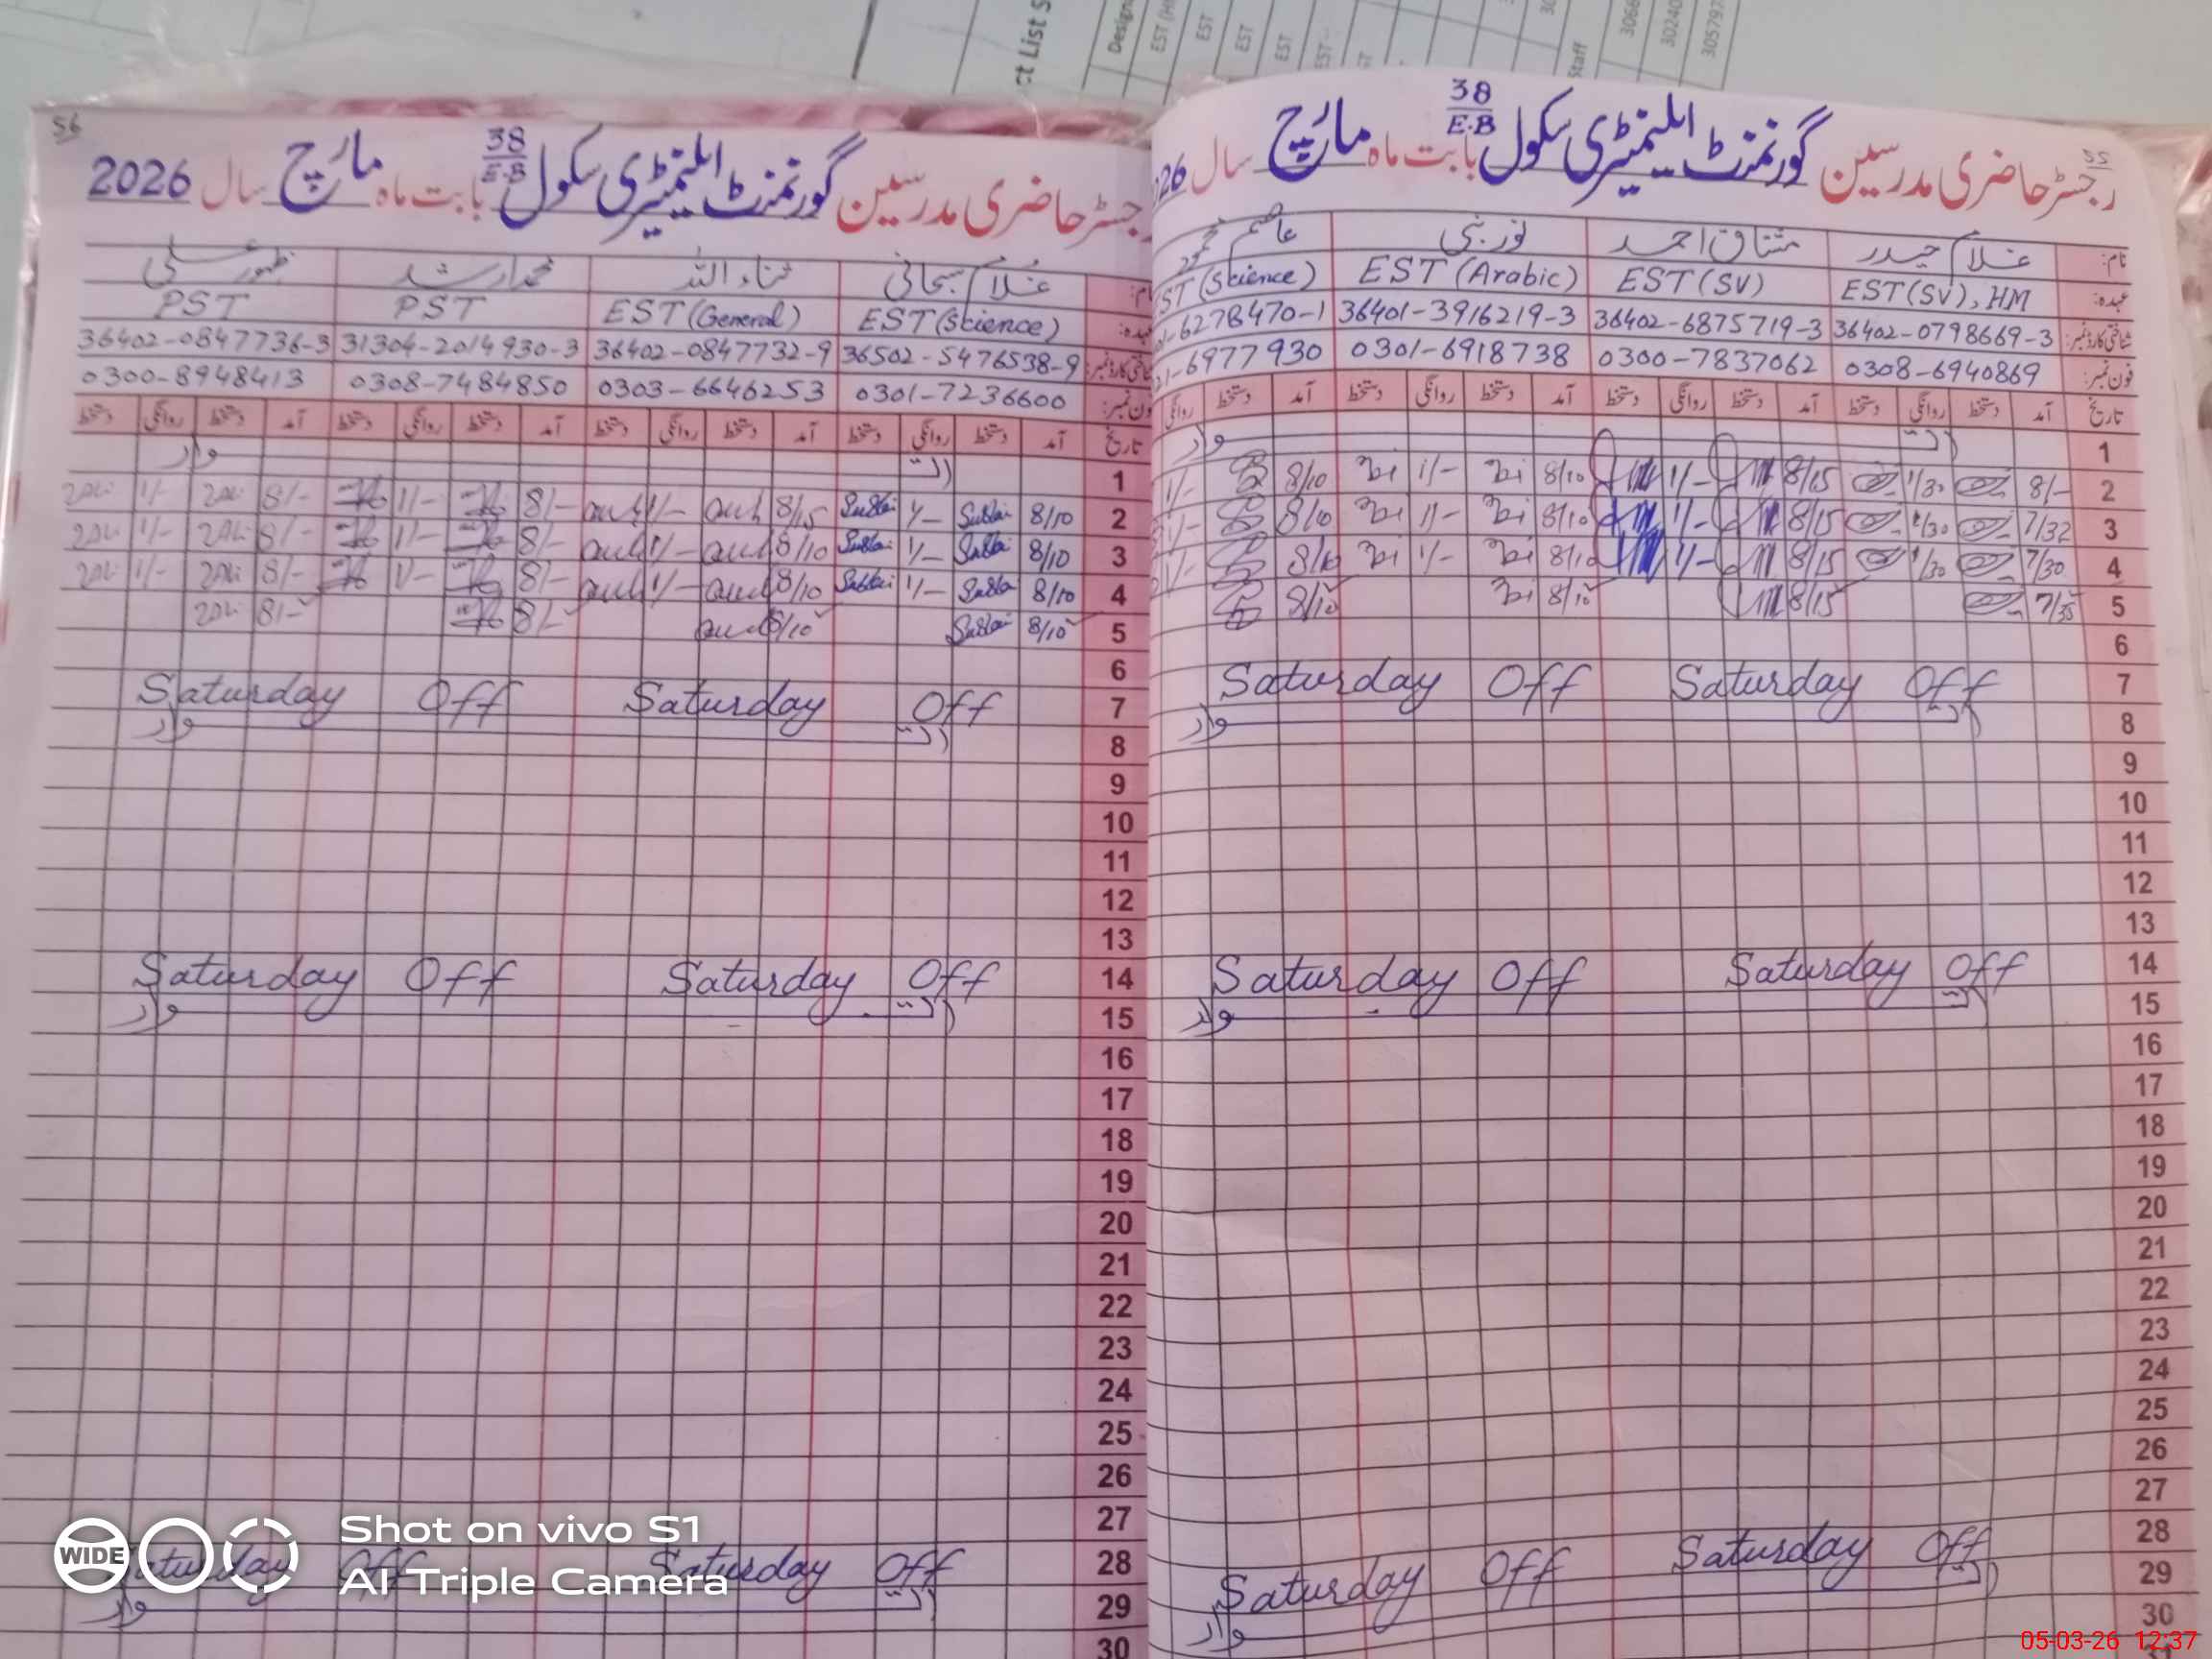 ct List S
Design
EST (H
EST
EST
EST
EST
Staff
3066
30240
305797
55
رجسٹر حاضری مدرسین گورنمنٹ ایلیمنٹری سکول 38/E.B بابت ماہ مارچ سال 26
نام: غلام حیدر مشتاق احمد نور نبی عاصم محمود
عہدہ: EST(SV), HM EST(SV) EST(Arabic) EST(Science)
شناختی کارڈ نمبر: 36402-0798669-3 36402-6875719-3 36401-3916219-3 -6278470-1
فون نمبر: 0308-6940869 0300-7837062 0301-6918738 21-6977930
تاریخ آمد دستخط روانگی دستخط آمد دستخط روانگی دستخط آمد دستخط روانگی دستخط آمد دستخط روانگی
1 اتوار
2 8/- 1/30 8/15 1/- 8/10 1/- 8/10 1/-
3 7/32 1/30 8/15 1/- 8/10 1/- 8/10 1/-
4 7/30 1/30 8/15 1/- 8/10 1/- 8/10 1/-
5 7/35 8/15 8/10 8/10
6
7 Saturday Off Saturday Off
8 اتوار
9
10
11
12
13
14 Saturday Off Saturday Off
15 اتوار
16
17
18
19
20
21
22
23
24
25
26
27
28 Saturday Off Saturday Off
29 اتوار
30
56
رجسٹر حاضری مدرسین گورنمنٹ ایلیمنٹری سکول 38/E.B بابت ماہ مارچ سال 2026
نام: غلام سبحانی ثناء اللہ محمد ارشد ظہور علی
عہدہ: EST(Science) EST(General) PST PST
شناختی کارڈ نمبر: 36502-5476538-9 36402-0847732-9 31304-2014930-3 36402-0847736-3
فون نمبر: 0301-7236600 0303-6646253 0308-7484850 0300-8948413
تاریخ آمد دستخط روانگی دستخط آمد دستخط روانگی دستخط آمد دستخط روانگی دستخط آمد دستخط روانگی دستخط
1 اتوار
2 8/10 1/- 8/15 1/- 8/- 1/- 8/- 1/-
3 8/10 1/- 8/10 1/- 8/- 1/- 8/- 1/-
4 8/10 1/- 8/10 1/- 8/- 1/- 8/- 1/-
5 8/10 8/10 8/- 8/-
6
7 Saturday Off Saturday Off
8 اتوار
9
10
11
12
13
14 Saturday Off Saturday Off
15 اتوار
16
17
18
19
20
21
22
23
24
25
26
27
28 Saturday Off Saturday Off
29 اتوار
30
WIDE
Shot on vivo S1
AI Triple Camera
05-03-26 12:37